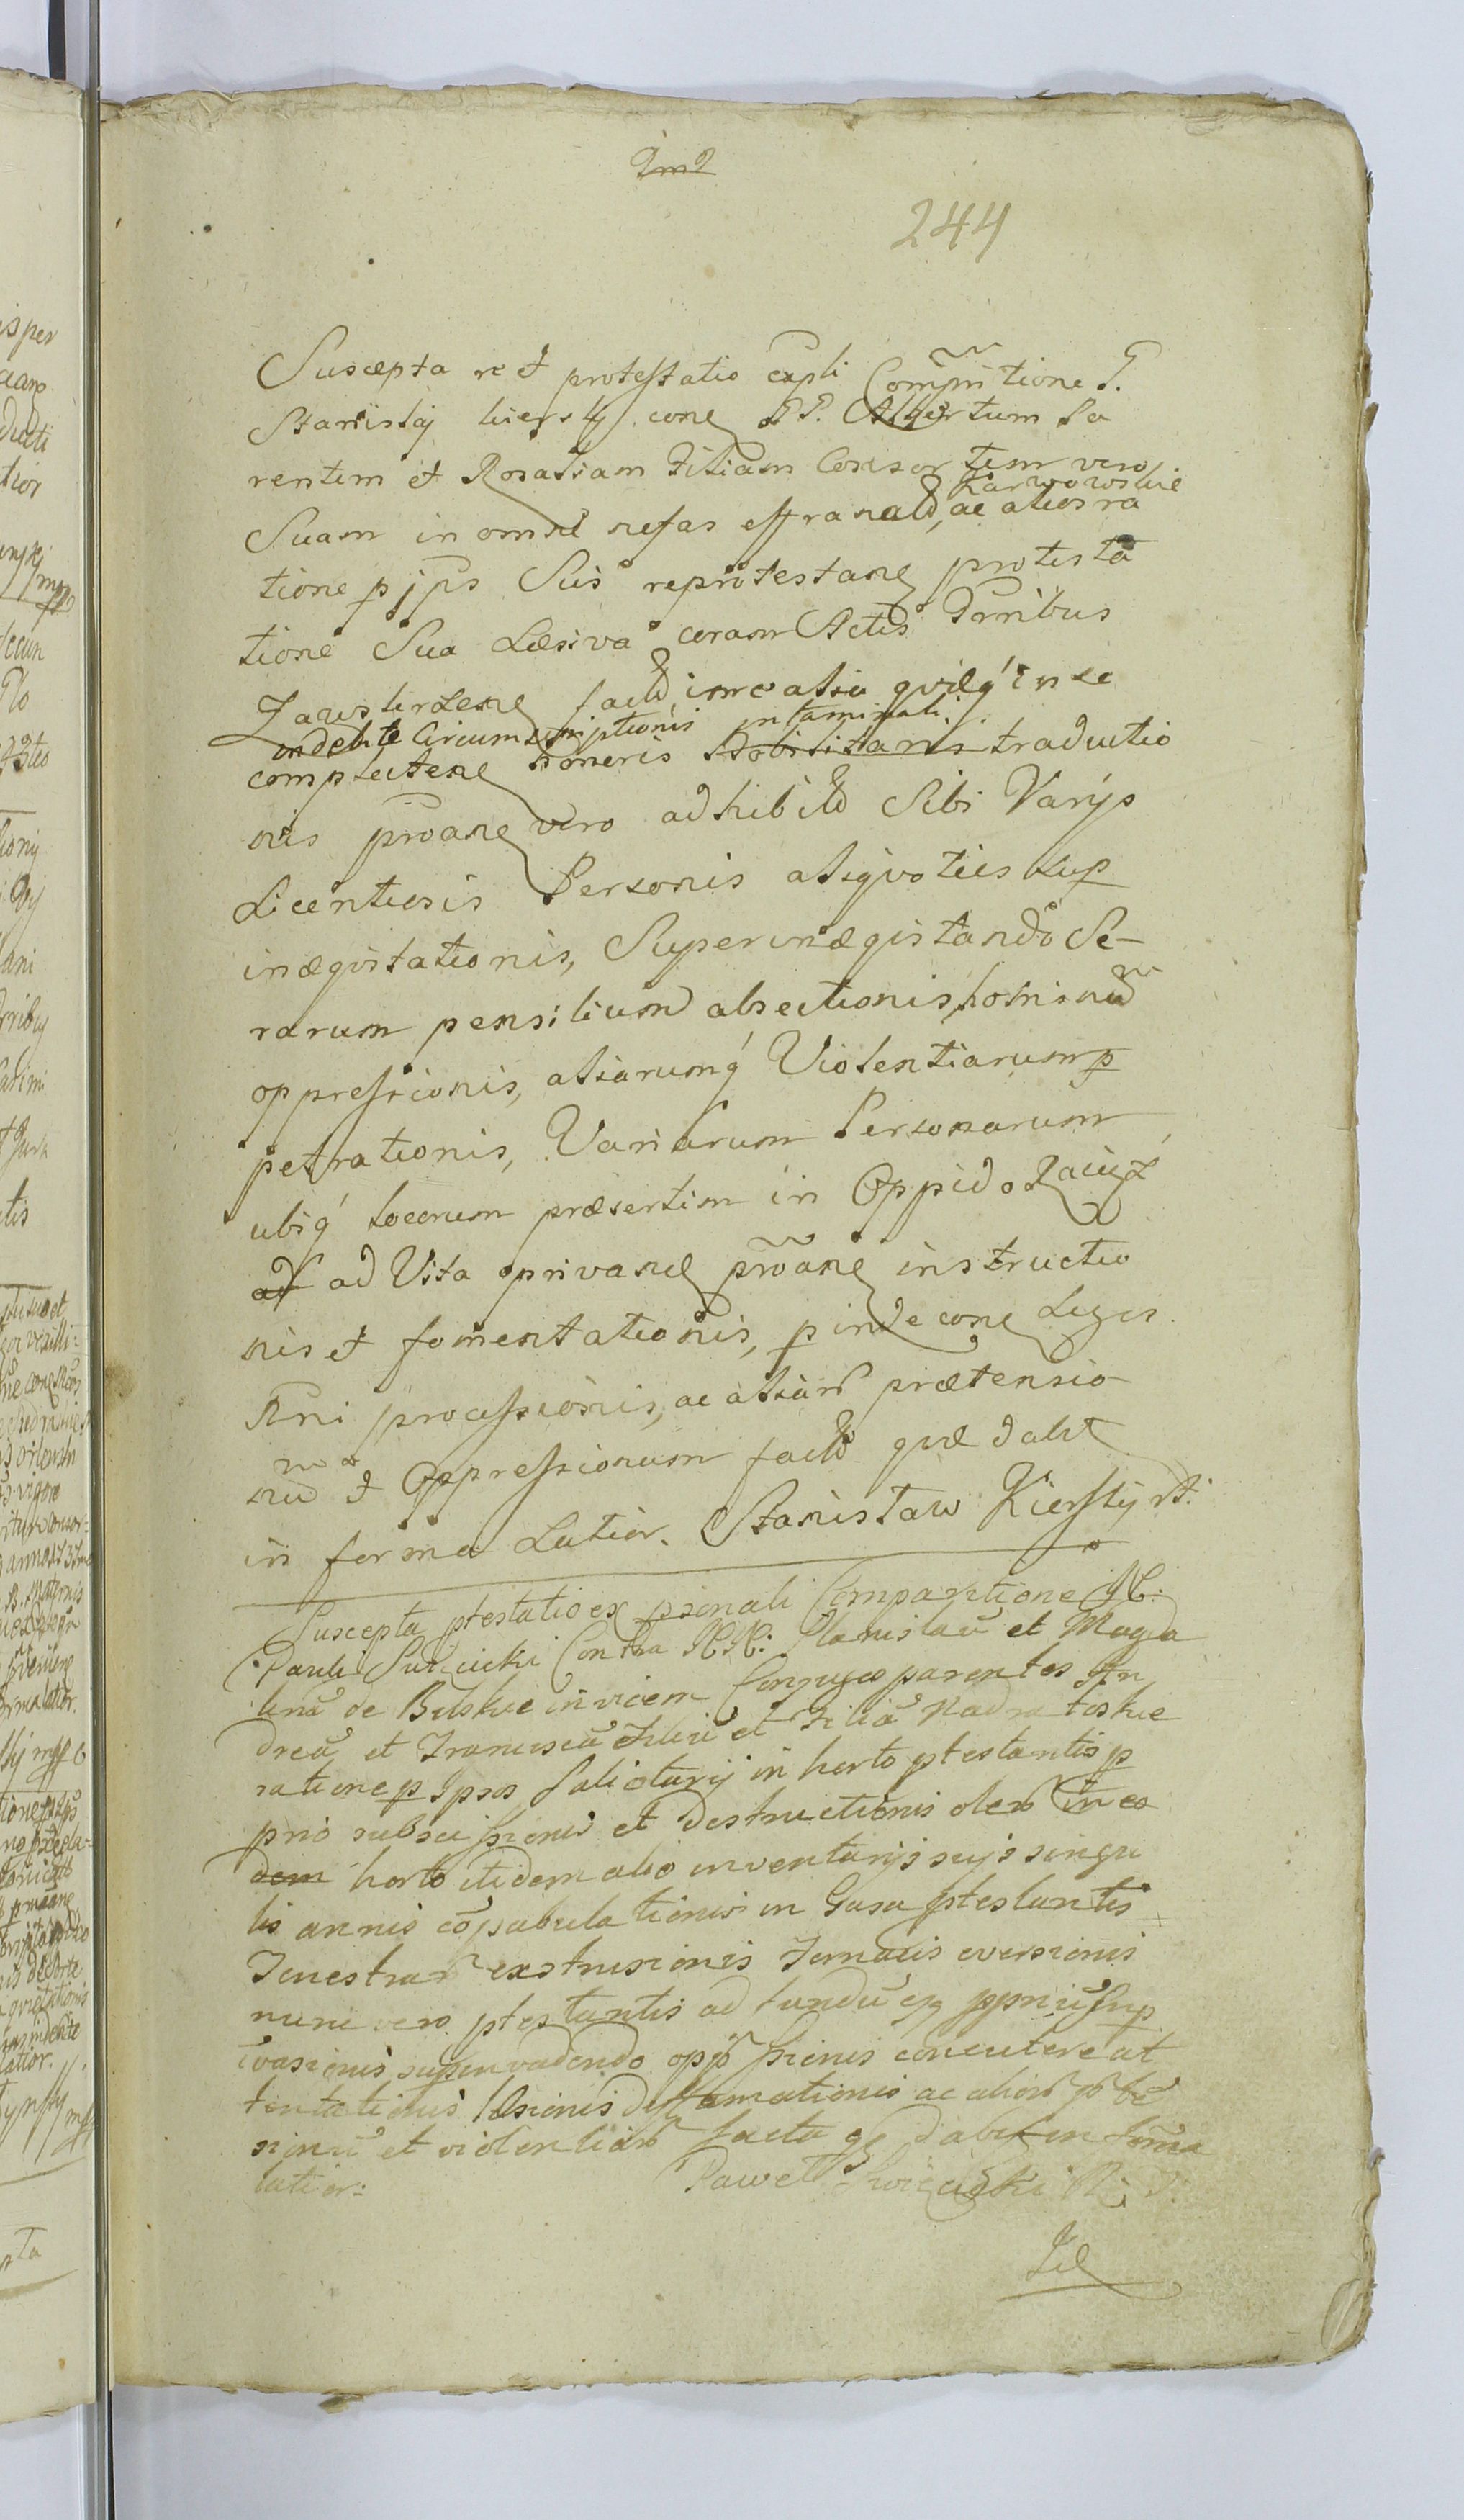 244
Suscepta re et protestatio expli Comparitione P.
Stanislaj kiersky cone PP. Albertum Pa
rentem et Rosaliam Filiam Consortem vero
Karwowskie
Suam in omne nefas effranald, ac alios ra
tione p jps Suis reprotestane protesta
tione Sua Læsiva coram Actis Pnnibus
facld, imo alia qvæq' in se
indebite Circumscriptionis intaminati
complectene honeris Nobilitaris traductio
nis proane vero adhibild Sibi Varijs
Licentiosis Personis aliqvoties sup
inægvitationis, Superinægvitando Se-
rarum pensilium absectionis, hominu
oppressionis, aliarumq' Violentiarum p
petrationis, Variarum Personarum
ubiq' locorum præsertim in Oppido Raciąż
ad ad Vita privane proane instructio
nis et fomentationis, p inde cone Leges
Rni processionis, ac aliar prætensio
nu et Oppressionum facld qvæ dabit
in forma Latior. Stanisław Kierslỹ R.
Suscepta ptestatio ex psonali Comparitione N:
Pauli Swięcicki Contra NN: Stanislau et Magda
lena de Bilskie invicem Conjuges parentes An
dreã et Franciscã Filiũ et Filiã Nadratoskie
ratione p ipsos Salictarij in horto ptestantis p
prio subscissionis et destructionis oler in eo
dem horto itidem alio inventarijs suis singu
lis annis cõpabulationis in Casa ptestantis
Fenestrar extrusionis Fornacis eversionis
nunc vero ptestantis ad fundũ eq ppriũ sup
ivasionis supinvadendo opp sionis concutere at
tentationis læsionis diffamationis ac alior
sionũ et violentiar facta qe dabit in forma
latior: Paweł Swięcicki